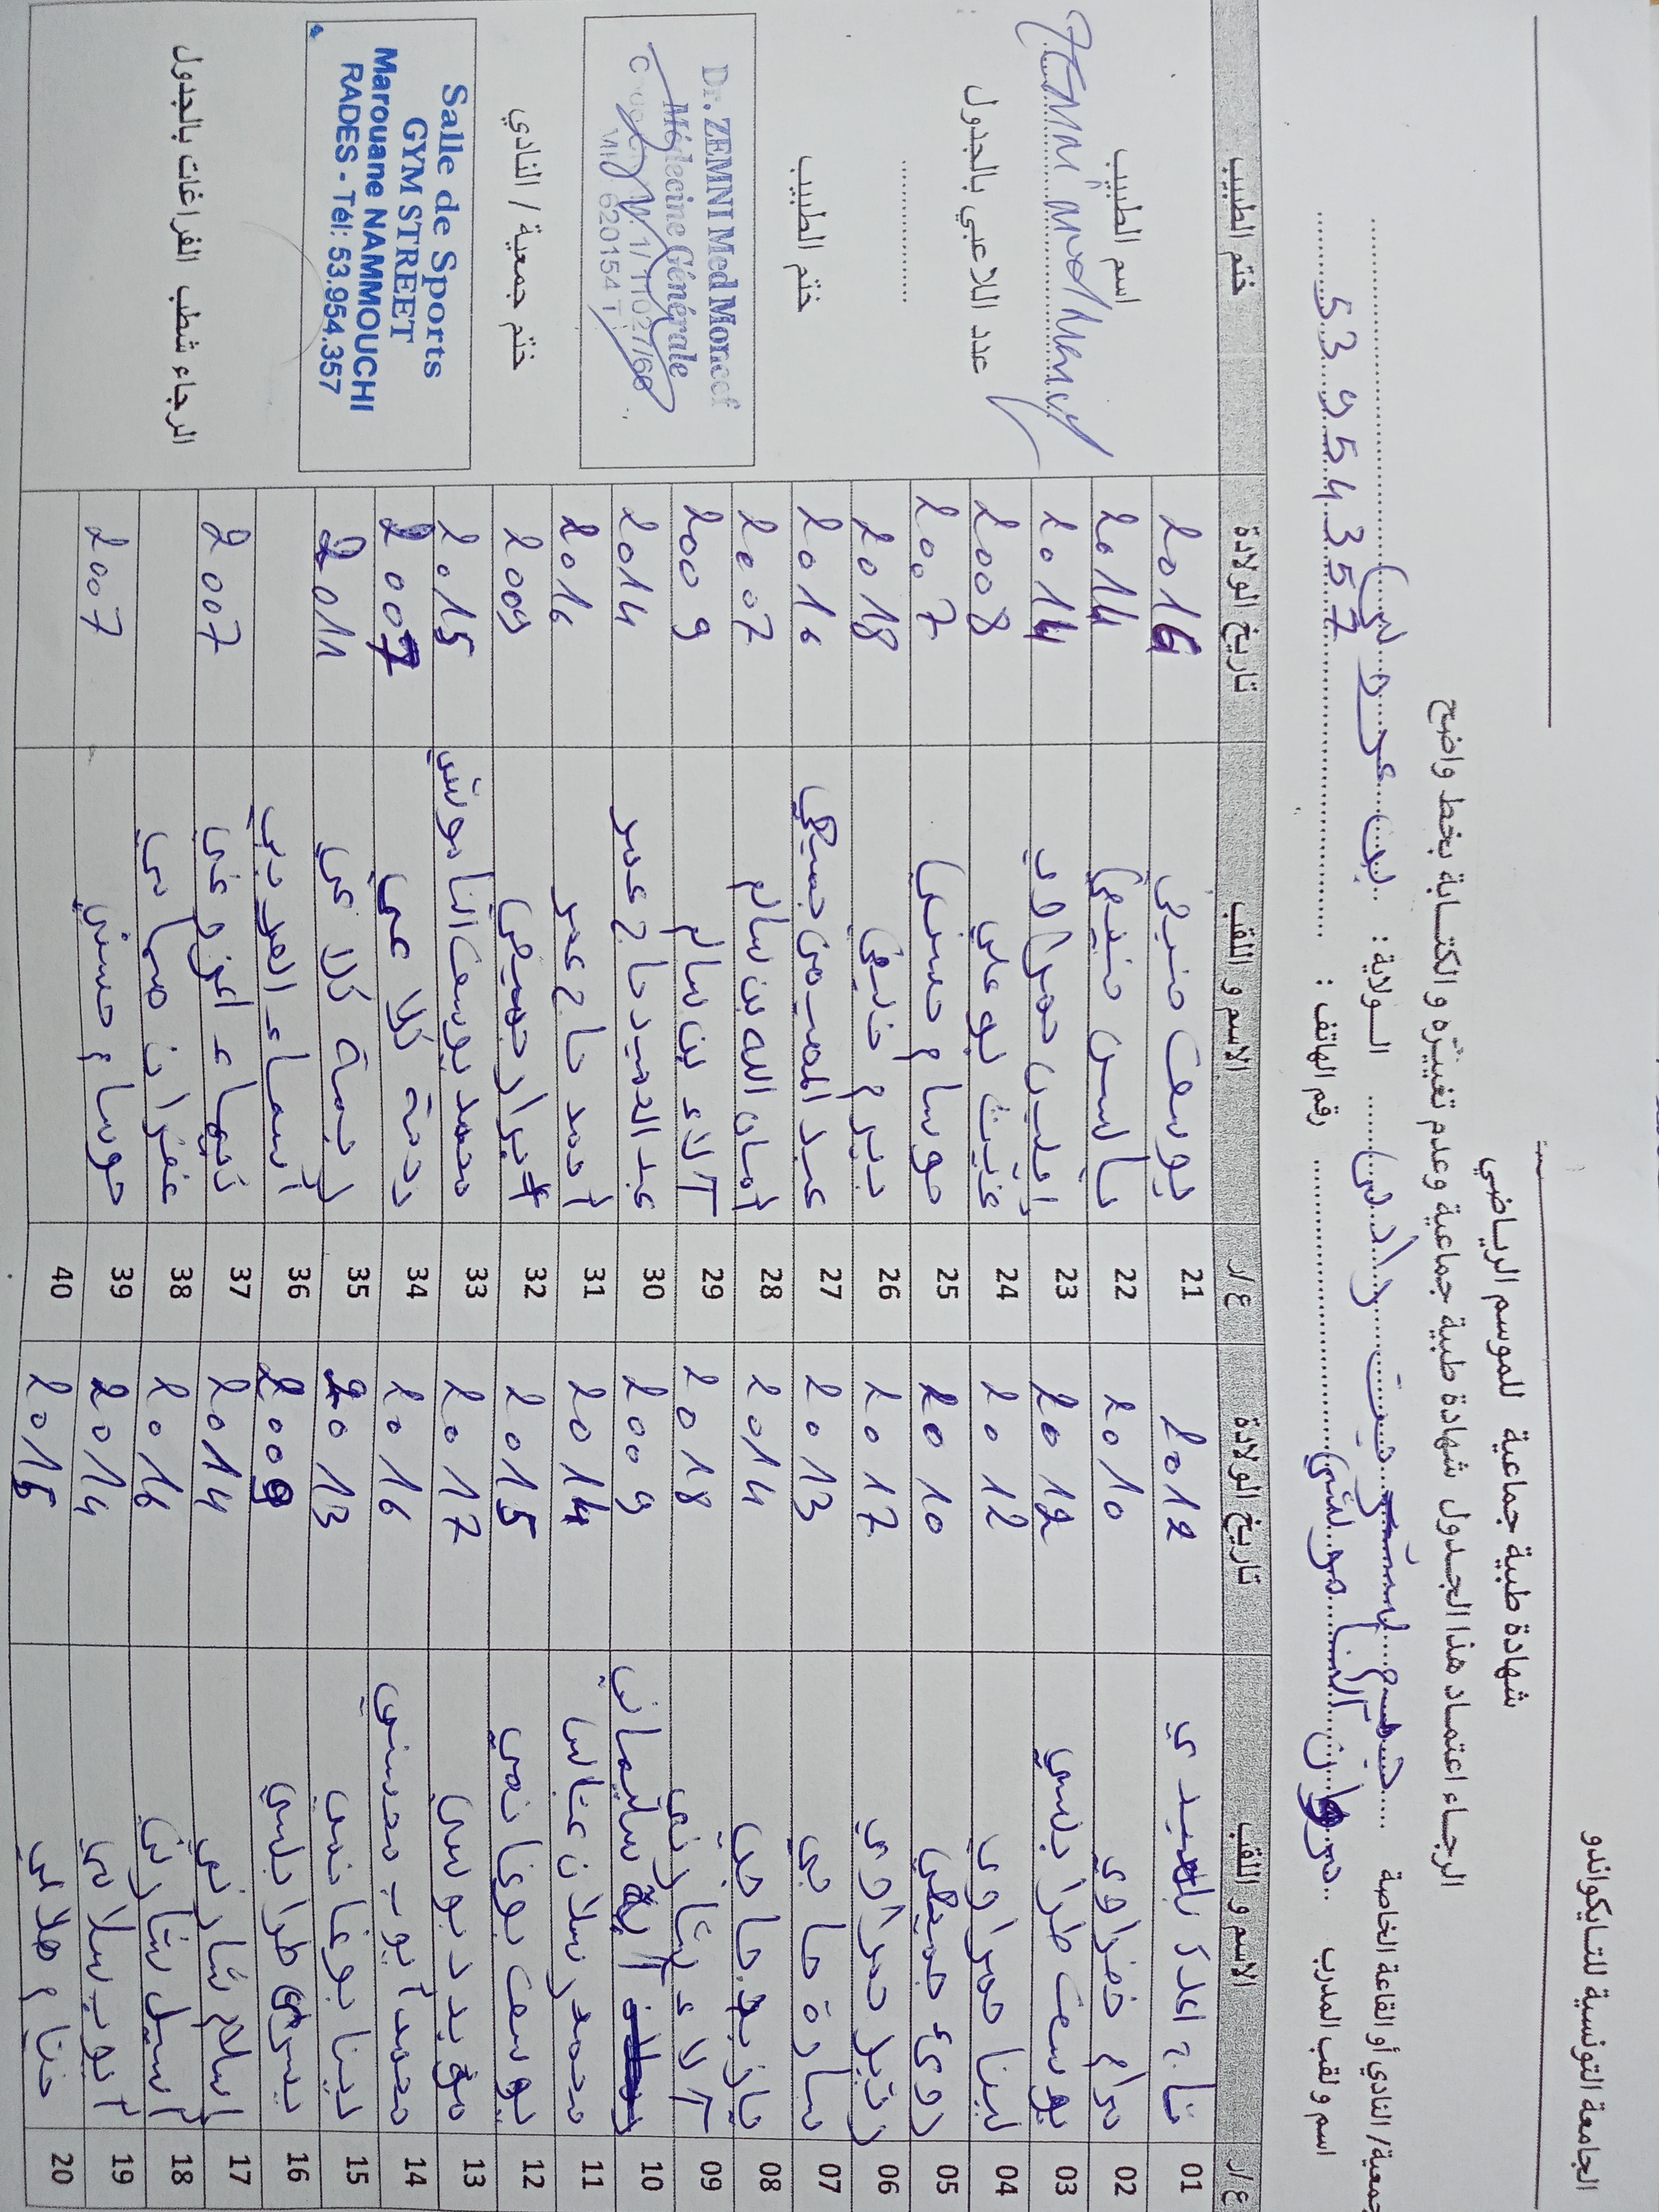 الجامعة التونسية للتايكواندو
شهادة طبية جماعية للموسم الرياضي
الرجاء اعتماد هذا الجدول شهادة طبية جماعية وعدم تغييره و الكتابة بخط واضح
جمعية/ النادي أو القاعة الخاصة ... جيم ستريت رادس ... الولاية : بن عروس
اسم و لقب المدرب .. مروان الناموشي ... رقم الهاتف : 53954357
ع/ر الاسم و اللقب تاريخ الولادة ع/ر الاسم و اللقب تاريخ الولادة ختم الطبيب
01 2012 21 يوسف 2016
02 مرام خضراوي 2010 22 ياسين 2014
03 يوسف طرابلسي 2012 23 إيلين حمراوي 2014
04 لينا حمراوي 2012 24 غيث بوعلي 2008
05 رؤى جميعي 2010 25 حوسام حسني 2007
06 زبير حمراوي 2017 26 2018
07 سارة حاجي 2013 27 عبد المهيمن جميعي 2016
08 يازيد حاجي 2014 28 أمان الله بن سالم 2007
09 آلاء شارني 2018 29 آلاء بن سالم 2009
10 آية سليماني 2009 30 عبد الحميد حاج عمر 2014
11 محمد رسلان عباس 2014 31 أحمد حاج عمر 2016
12 يوسف بوغانمي 2015 32 ابرار جميعي 2009
13 مؤيد دبوسي 2017 33 محمد يوسف الناموشي 2015
14 محمد أيوب محسني 2016 34 رحمة كلاعي 2007
15 لينا بوغانمي 2013 35 بسمة كلاعي 2011
16 يسرى طرابلسي 2009 36 أسماء العوديي
17 إسلام شارني 2014 37 شيماء 2007
18 أسيل شارني 2016 38 غفران
19 أيوب سلامي 2014 39 حوسام حسني 2007
20 ختام هلالي 2015 40
اسم الطبيب
عدد اللاعبي بالجدول
ختم الطبيب
Dr. ZEMNI Med Moncef
Médecine Générale
ختم جمعية / النادي
Salle de Sports
GYM STREET
Marouane NAMMOUCHI
RADES - Tél: 53.954.357
الرجاء شطب الفراغات بالجدول